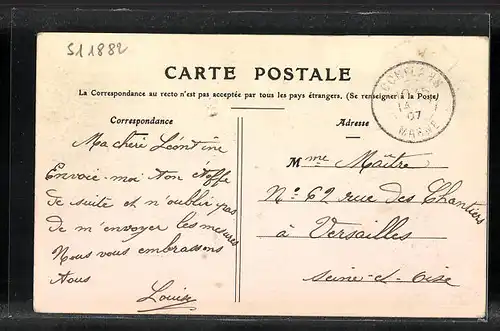 S11882
CARTE POSTALE
La Correspondance au recto n'est pas acceptée par tous les pays étrangers. (Se renseigner à la Poste)
Correspondance
Ma chère Léontine
Envoie-moi ton étoffe
de suite et n'oublie pas
de m'envoyer les mesures
Nous vous embrassons
tous
Louise
Adresse
Mme Maître
No 62 rue des Chantiers
à Versailles
Seine-et-Oise
07
MARNE